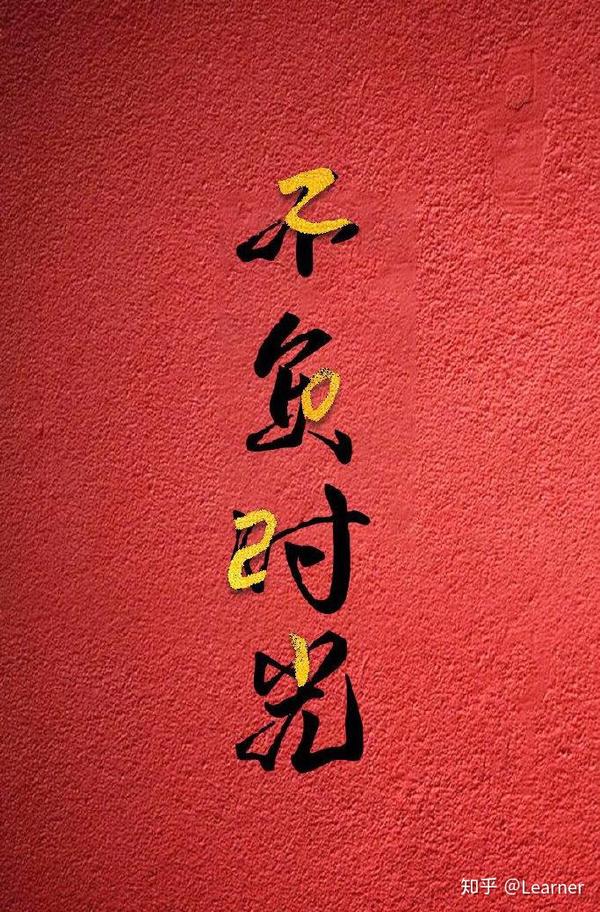 不负时光
2021
知乎 @Learner